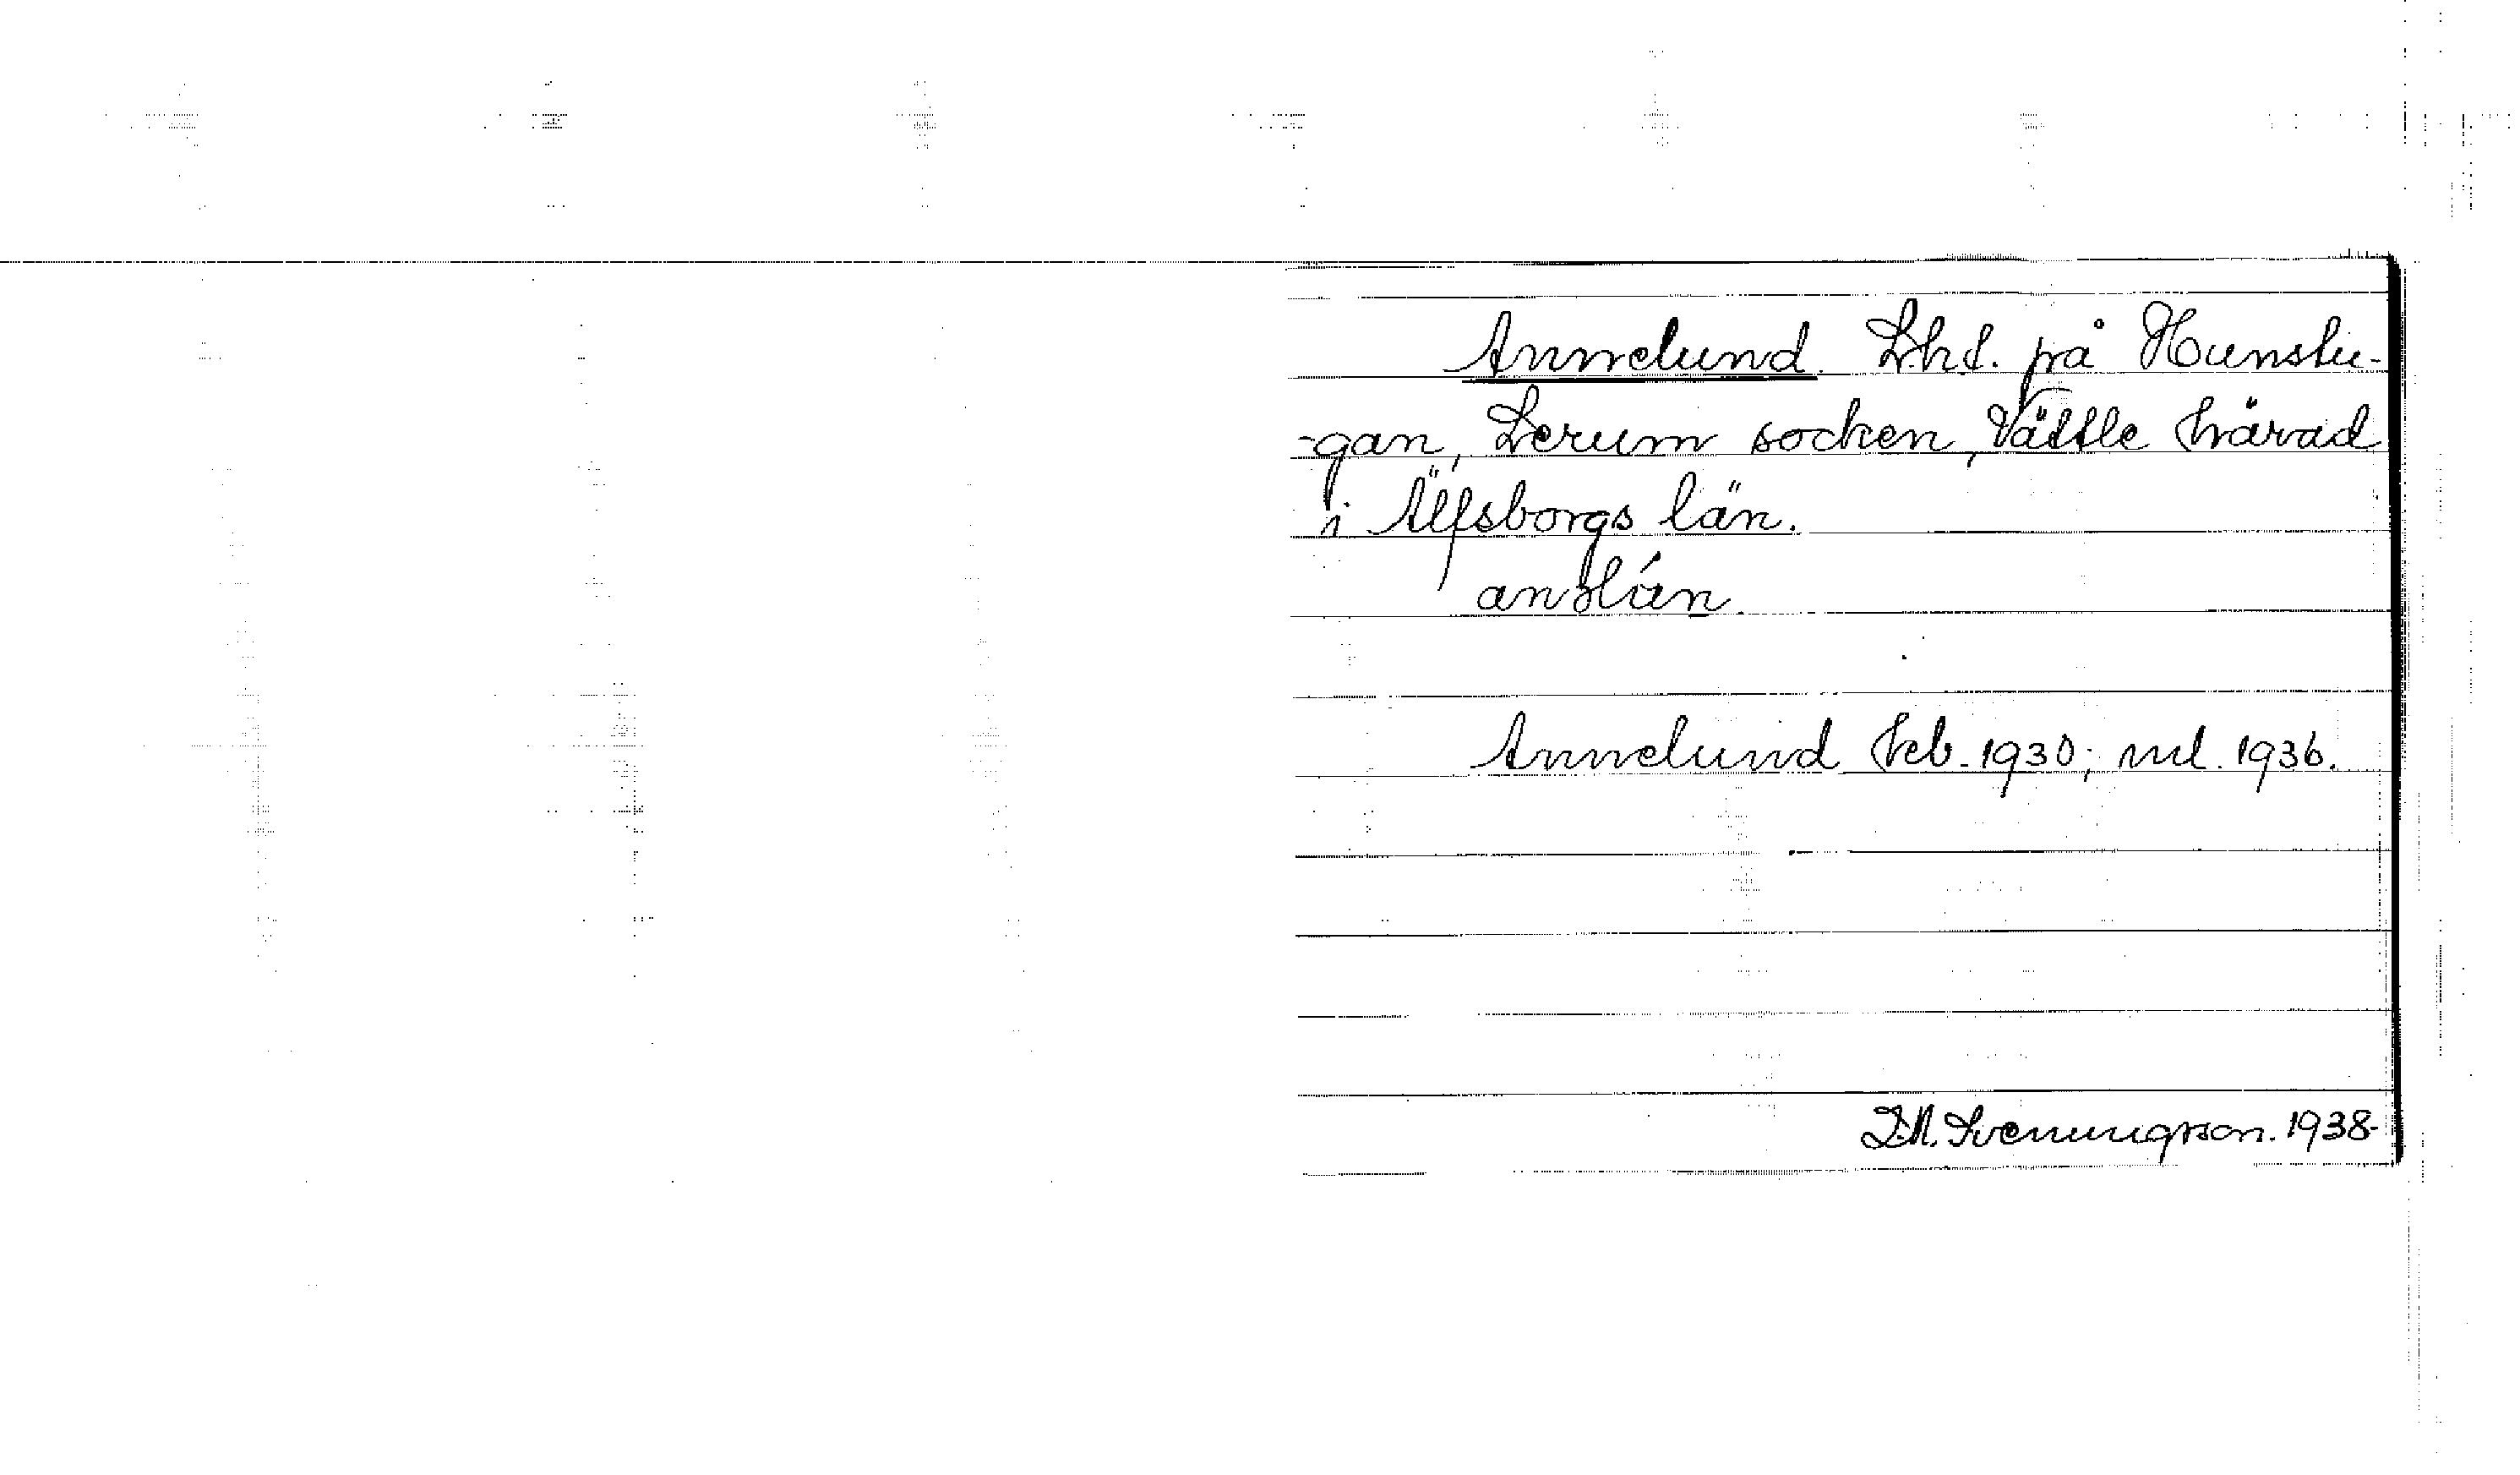 Annelund. Lht. på Hunstu-
-gan, Lerum socken, Vättle härad
i Älfsborgs län.
Annelund feb. 1930; ml. 1936.
D.A. Svenungsson. 1938.